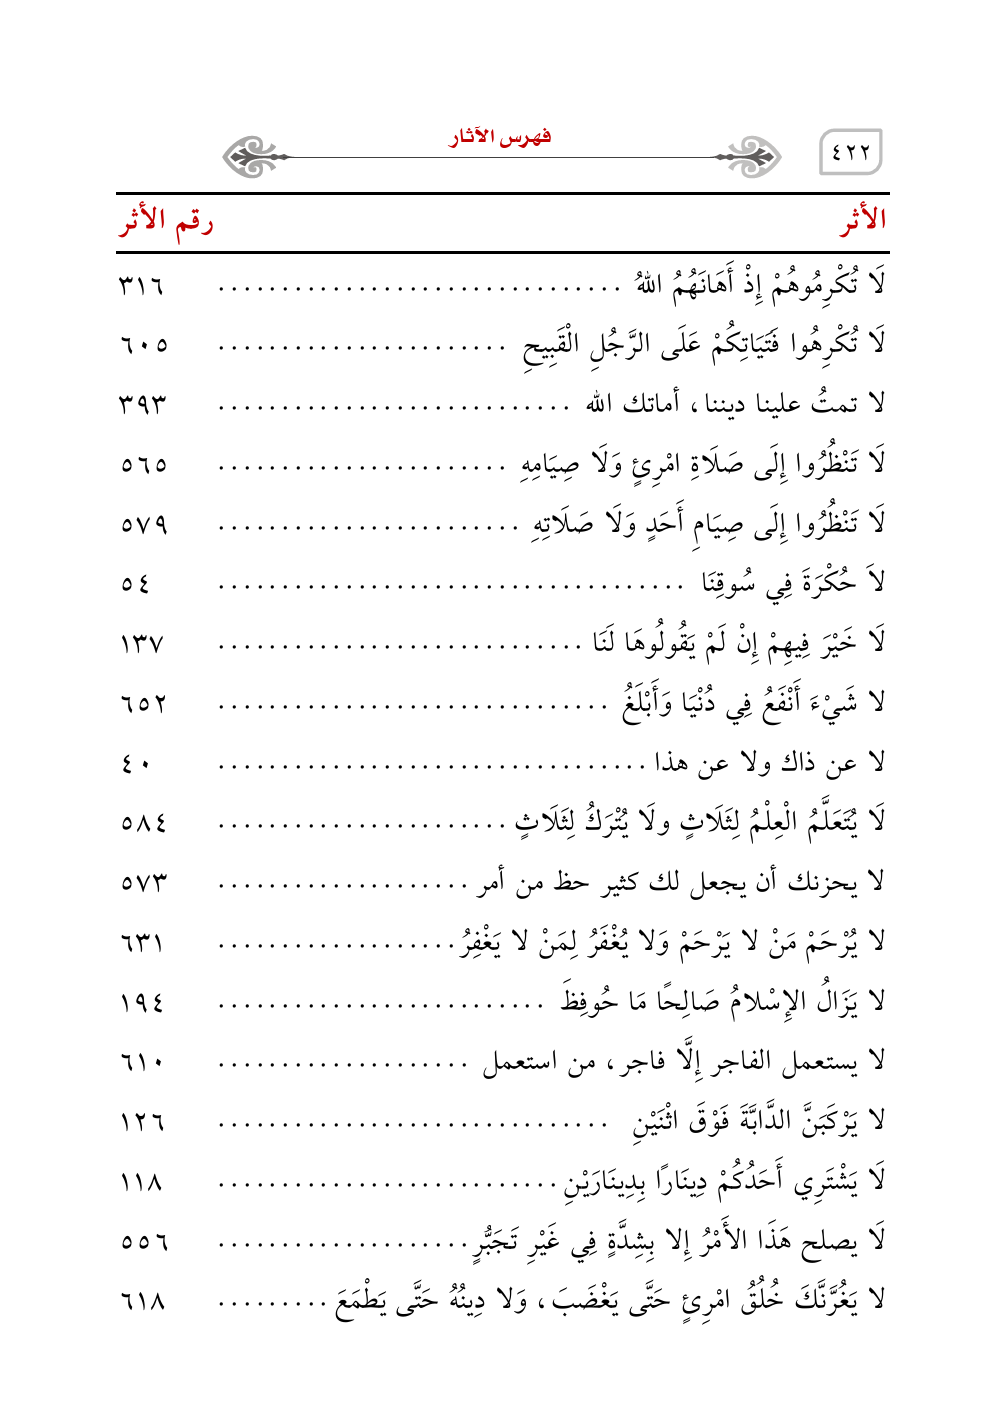 ٤٢٢
فهرس الآثار
الأثر رقم الأثر
لَا تُكْرِمُوهُمْ إِذْ أَهَانَهُمُ اللهُ ................................ ٣١٦
لَا تُكْرِهُوا فَتَيَاتِكُمْ عَلَى الرَّجُلِ الْقَبِيحِ ....................... ٦٠٥
لا تمتُ علينا ديننا، أماتك الله ............................ ٣٩٣
لَا تَنْظُرُوا إِلَى صَلَاةِ امْرِئٍ وَلَا صِيَامِهِ ....................... ٥٦٥
لَا تَنْظُرُوا إِلَى صِيَامِ أَحَدٍ وَلَا صَلَاتِهِ ........................ ٥٧٩
لاَ حُكْرَةَ فِي سُوقِنَا ..................................... ٥٤
لَا خَيْرَ فِيهِمْ إِنْ لَمْ يَقُولُوهَا لَنَا ............................. ١٣٧
لا شَيْءَ أَنْفَعُ فِي دُنْيَا وَأَبْلَغُ ............................... ٦٥٢
لا عن ذاك ولا عن هذا .................................. ٤٠
لَا يُتَعَلَّمُ الْعِلْمُ لِثَلَاثٍ ولَا يُتْرَكُ لِثَلَاثٍ ....................... ٥٨٤
لا يحزنك أن يجعل لك كثير حظ من أمر .................... ٥٧٣
لا يُرْحَمْ مَنْ لا يَرْحَمْ وَلا يُغْفَرُ لِمَنْ لا يَغْفِرُ ................... ٦٣١
لا يَزَالُ الإِسْلامُ صَالِحًا مَا حُوفِظَ .......................... ١٩٤
لا يستعمل الفاجر إِلَّا فاجر، من استعمل .................... ٦١٠
لا يَرْكَبَنَّ الدَّابَّةَ فَوْقَ اثْنَيْنِ ............................... ١٢٦
لَا يَشْتَرِي أَحَدُكُمْ دِينَارًا بِدِينَارَيْنِ ........................... ١١٨
لَا يصلح هَذَا الأَمْرُ إِلا بِشِدَّةٍ فِي غَيْرِ تَجَبُّرٍ .................... ٥٥٦
لا يَغُرَّنَّكَ خُلُقُ امْرِئٍ حَتَّى يَغْضَبَ، وَلا دِينُهُ حَتَّى يَطْمَعَ ......... ٦١٨